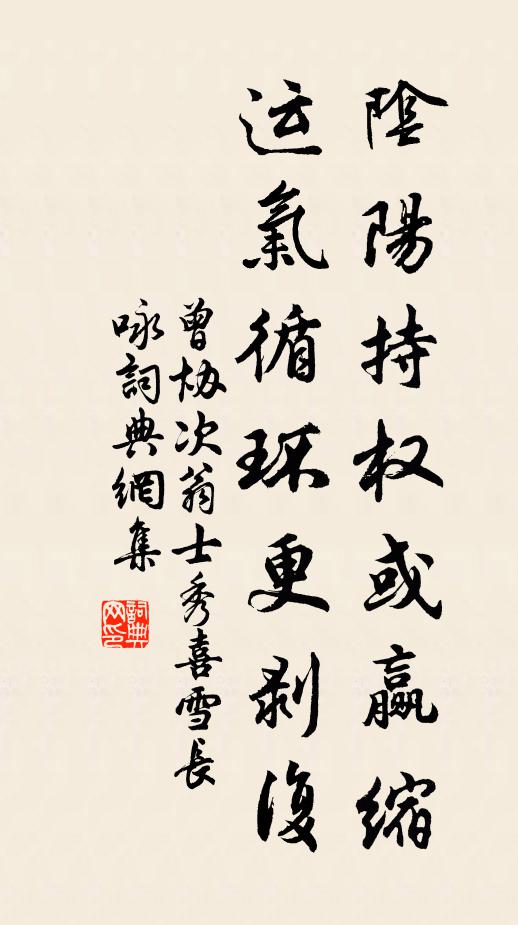 陰陽持权或贏縮
运氣循环更剥復
曾协次翁士秀喜雪長
咏詞典網集
詞典网印